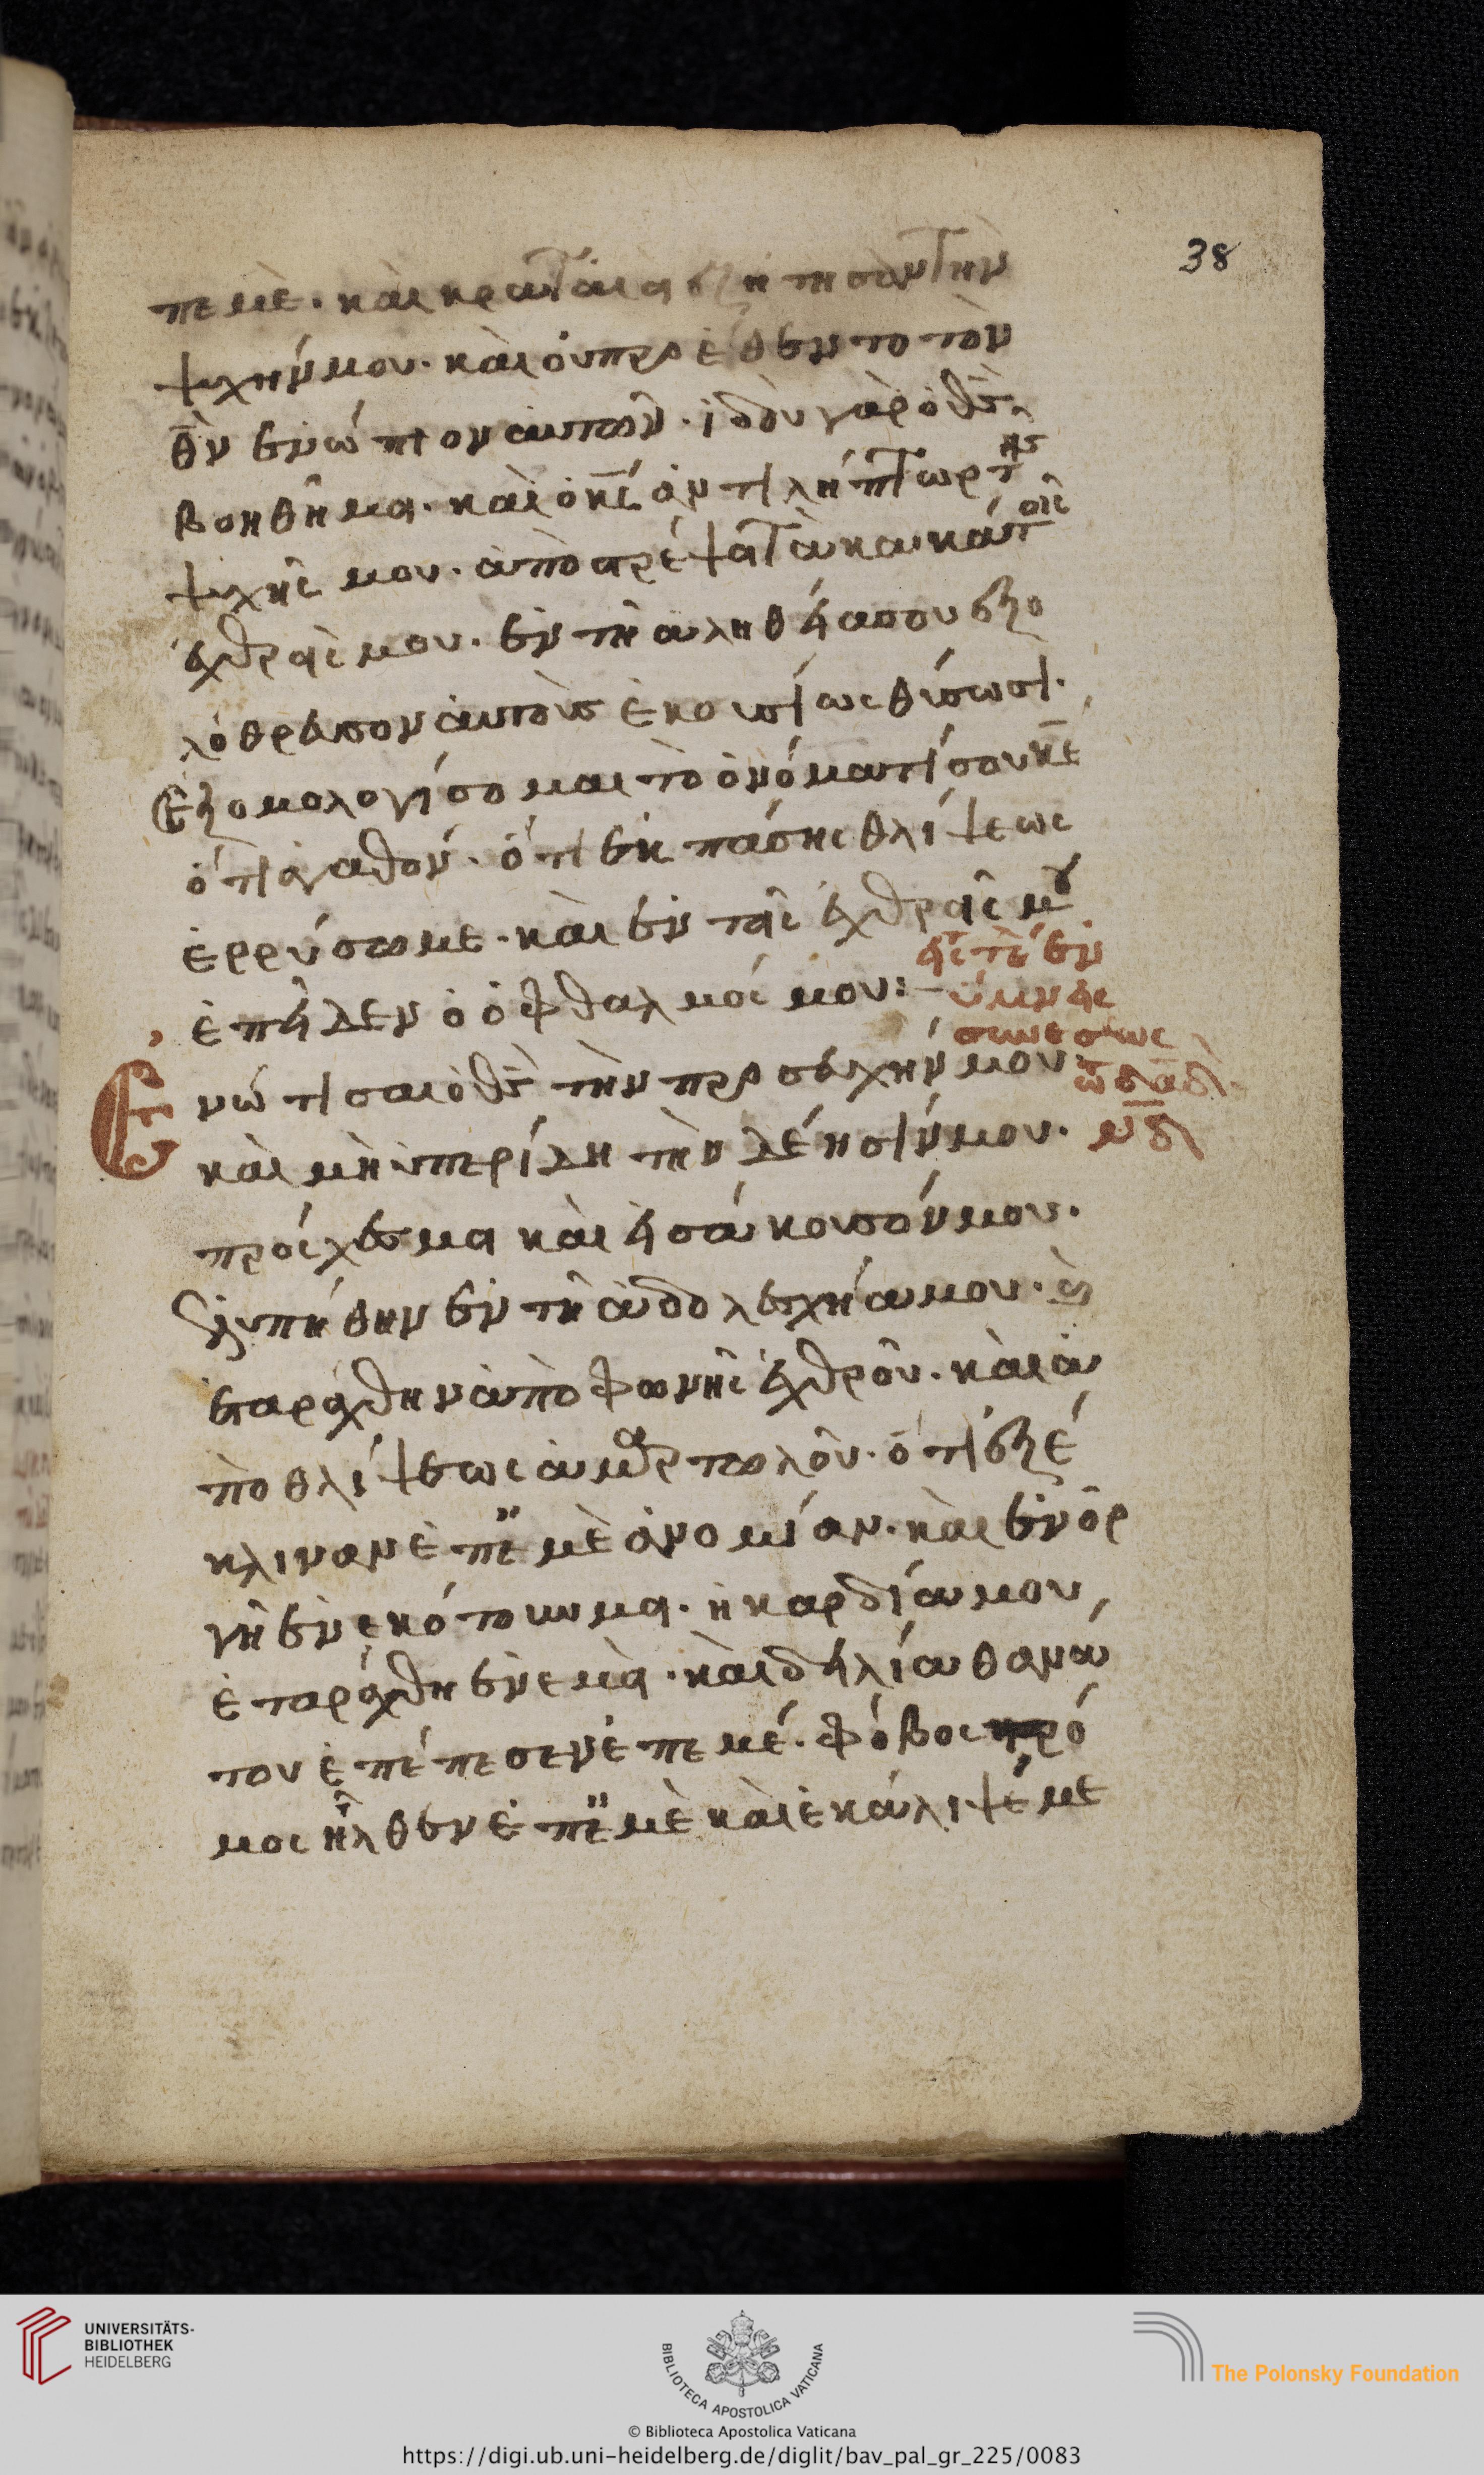 38
πεμὲ. καὶ κραταιαὶ ἐζήτησαν τὴν
ψυχήν μου. καὶ οὐ προέθεντο τὸν
θ̅ν̅ ἐνώπιον αὐτῶν. ἰδοὺ γὰρ ὁ θ̅ς̅
βοηθῆ μαι. καὶ ὁ κ̅ς̅ ἀντιλήπτωρ τῆς
ψυχῆς μου. ἀπὸστρέψαι τὰ κακὰ τοῖς
ἐχθραῖς μου. ἐν τῆ ἀληθείασου ἐξο
λόθρευσον αὐτοὺς ἐκουσίως θύσωσι.
Ἐξομολογήσομαι τὸ ὀνόματί σου κ̅ε̅
ὅτι ἀγαθόν. ὅτι ἐκ πάσης θλίψεως
ἐρρύσω με. καὶ ἐν ταῖς ἐχθραῖς μου
ἐπεῖδεν ὁ ὀφθαλμός μου:-
εἰς τὸ ἐν
ὕμνεις
συνεσεως
τῶ δαδ
νδ
Ἐνώτισαι ὁ θ̅ς̅ τὴν προσευχήν μου.
καὶ μὴ ὑπερίδη τὴν δέησίν μου.
πρόσχες μαι καὶ εἰσάκουσόν μου.
Ἐλυπήθην ἐν τῆ ἀδολεσχήα μου. καὶ
ἐταράχθην ἀπὸ φωνῆς ἐχθροῦ. καὶ ἀ
πὸ θλίψεως ἁμαρτωλοῦ. ὅτι ἐξέ
κλιναν ἐπεμὲ ἀνομίαν. καὶ ἐν ὀρ
γῆ ἐνεκότουν μαι. ἡ καρδία μου
ἐταράχθη ἐν ἐμαὶ. καὶ δειλία θανά
του ἐπέπεσεν ἐπεμέ. φόβος τρό
μος ἦλθεν ἐπεμὲ καὶ ἐκάλιψέ με
UNIVERSITÄTS-
BIBLIOTHEK
HEIDELBERG
BIBLIOTECA APOSTOLICA VATICANA
The Polonsky Foundation
© Biblioteca Apostolica Vaticana
https://digi.ub.uni-heidelberg.de/diglit/bav_pal_gr_225/0083